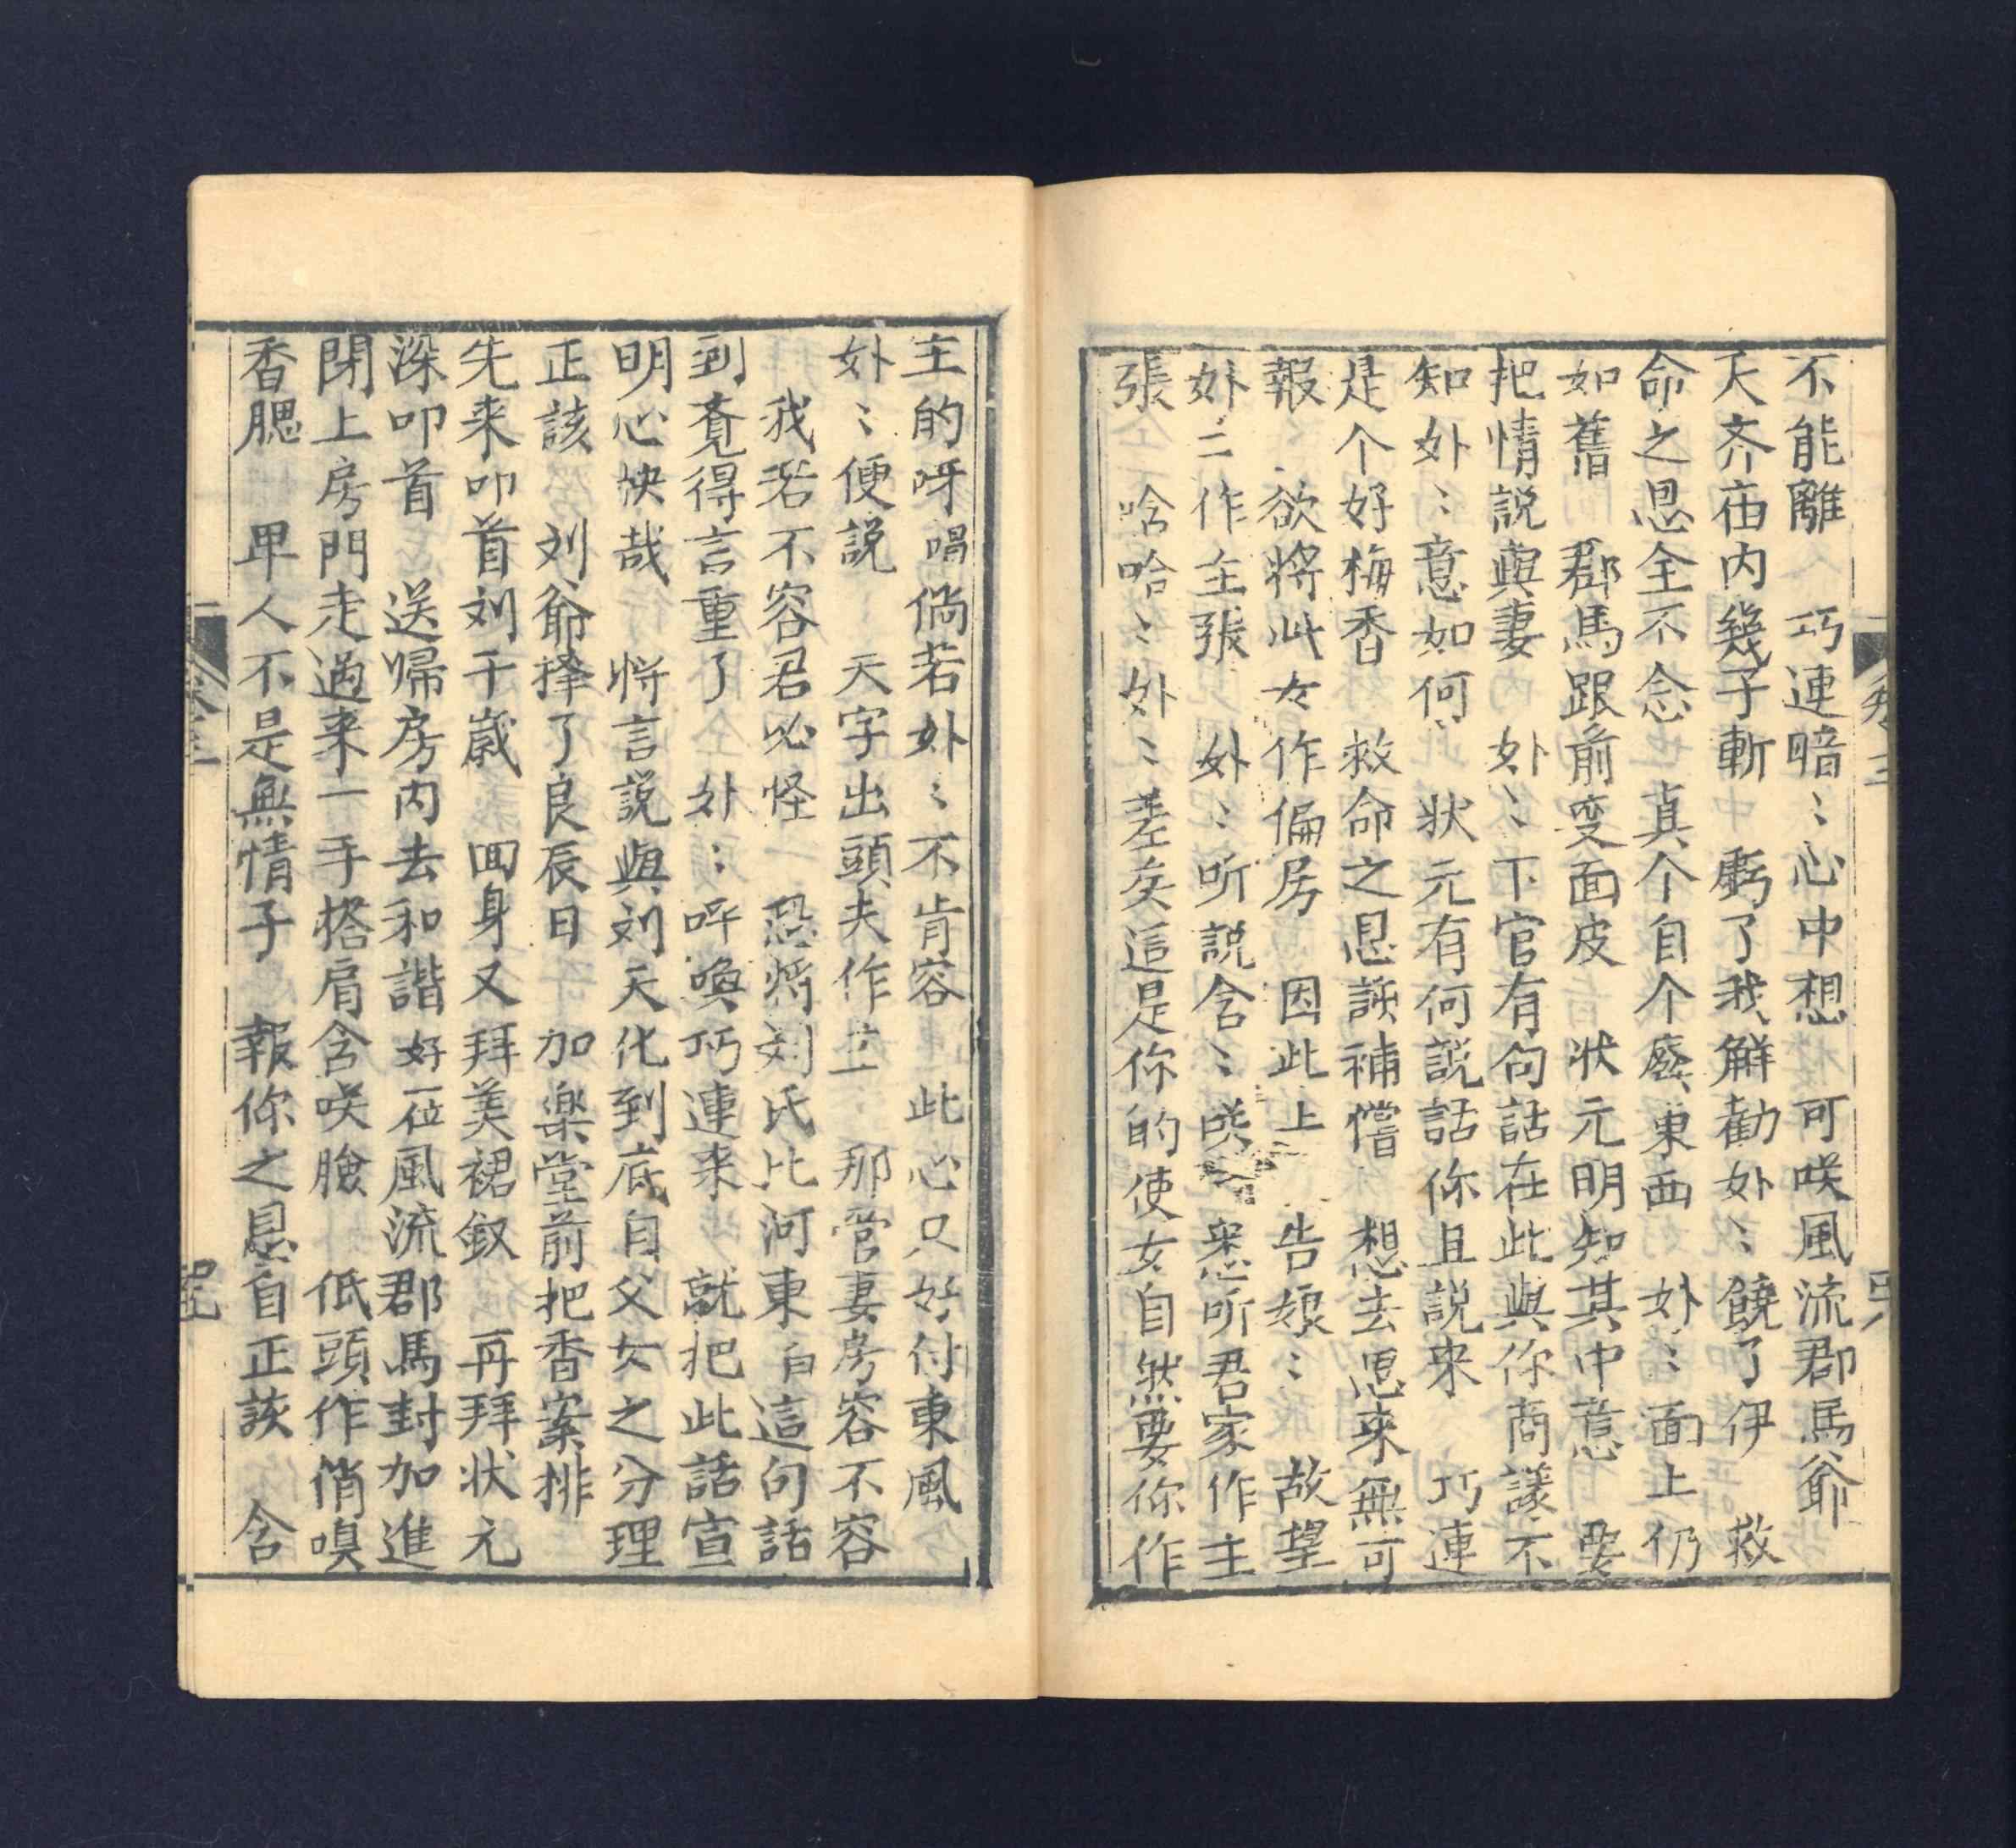 不能離　巧連暗〻心中想　可咲風流郡馬爺
天齐庙内幾乎斬　虧了我解勸外〻　饒了伊　救
命之恩全不念　真个自个廢東西　外〻面上仍
如舊　郡馬跟前变面皮　状元明知其中意　要
把情説與妻　外〻下官有句話在此與你商議不
知外〻意如何　状元有何説話你且説来　巧連
是个好梅香　救命之恩該補償　想去思来無可
報　欲將此女作偏房　因此上　告娘〻　故望
外〻作主張　外〻听説含〻咲　悉听君家作主
張　哈哈〻外〻差矣這是你的使女自然要你作
卷三
主的呀唱倘若外〻不肯容　此心只好付東風
外〻便説　天字出頭夫作主　那管妻房容不容
我若不容君必怪　恐將刘氏比河東白這句話
到覔得言重了　外〻呼喚巧連来　就把此話宣
明心快哉　將言説與刘天化到底自父女之分理
正該　刘爺擇了良辰日　加楽堂前把香案排
先来叩首刘千歲　囬身又拜美裙釵　再拜状元
深叩首　送帰房内去和諧好一位風流郡馬封加進
閉上房門走過来一手搭肩含咲臉　低頭作俏嗅
香腮　卑人不是無情子　報你之恩自正該　含
卷三